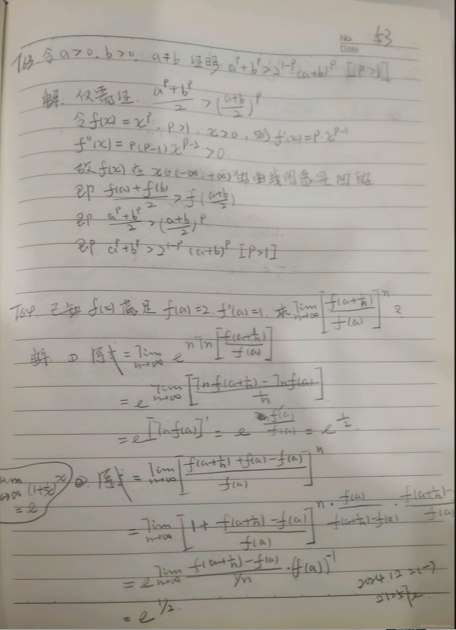 No. 53
Date
T63. 令a>0, b>0, a≠b 证明 a^p+b^p>2^{1-p}(a+b)^p [P>1]
解. 仅需证 \frac{a^p+b^p}{2}>(\frac{a+b}{2})^p
令f(x)=x^p, p>1, x>0, 则 f'(x)=p x^{p-1}
f''(x)=p(p-1)x^{p-2}>0
故f(x)在 x∈(-∞,+∞) 曲线图象是凹
即 \frac{f(a)+f(b)}{2}>f(\frac{a+b}{2})
即 \frac{a^p+b^p}{2}>(\frac{a+b}{2})^p
即 a^p+b^p>2^{1-p}(a+b)^p [P>1]
T64 已知f(x)满足 f(a)=2 f'(a)=1, 求 \lim_{n→∞}[\frac{f(a+\frac{1}{n})}{f(a)}]^n ?
解 ① 原式=\lim_{n→∞} e^{n ln[\frac{f(a+\frac{1}{n})}{f(a)}]}
=e^{\lim_{n→∞}[\frac{ln f(a+\frac{1}{n})-ln f(a)}{\frac{1}{n}}]}
=e^{[ln f(a)]'}=e^{\frac{f'(a)}{f(a)}}=e^{\frac{1}{2}}.
(1+\frac{1}{x})^x
=e
② 原式=\lim_{n→∞}[\frac{f(a+\frac{1}{n})+f(a)-f(a)}{f(a)}]^n
=\lim_{n→∞}[1+\frac{f(a+\frac{1}{n})-f(a)}{f(a)}]^{n·\frac{f(a)}{f(a+\frac{1}{n})-f(a)}·\frac{f(a+\frac{1}{n})-}{f(a)}}
=e^{\lim_{n→∞}\frac{f(a+\frac{1}{n})-f(a)}{1/n}·(f(a))^{-1}}
=e^{1/2}.